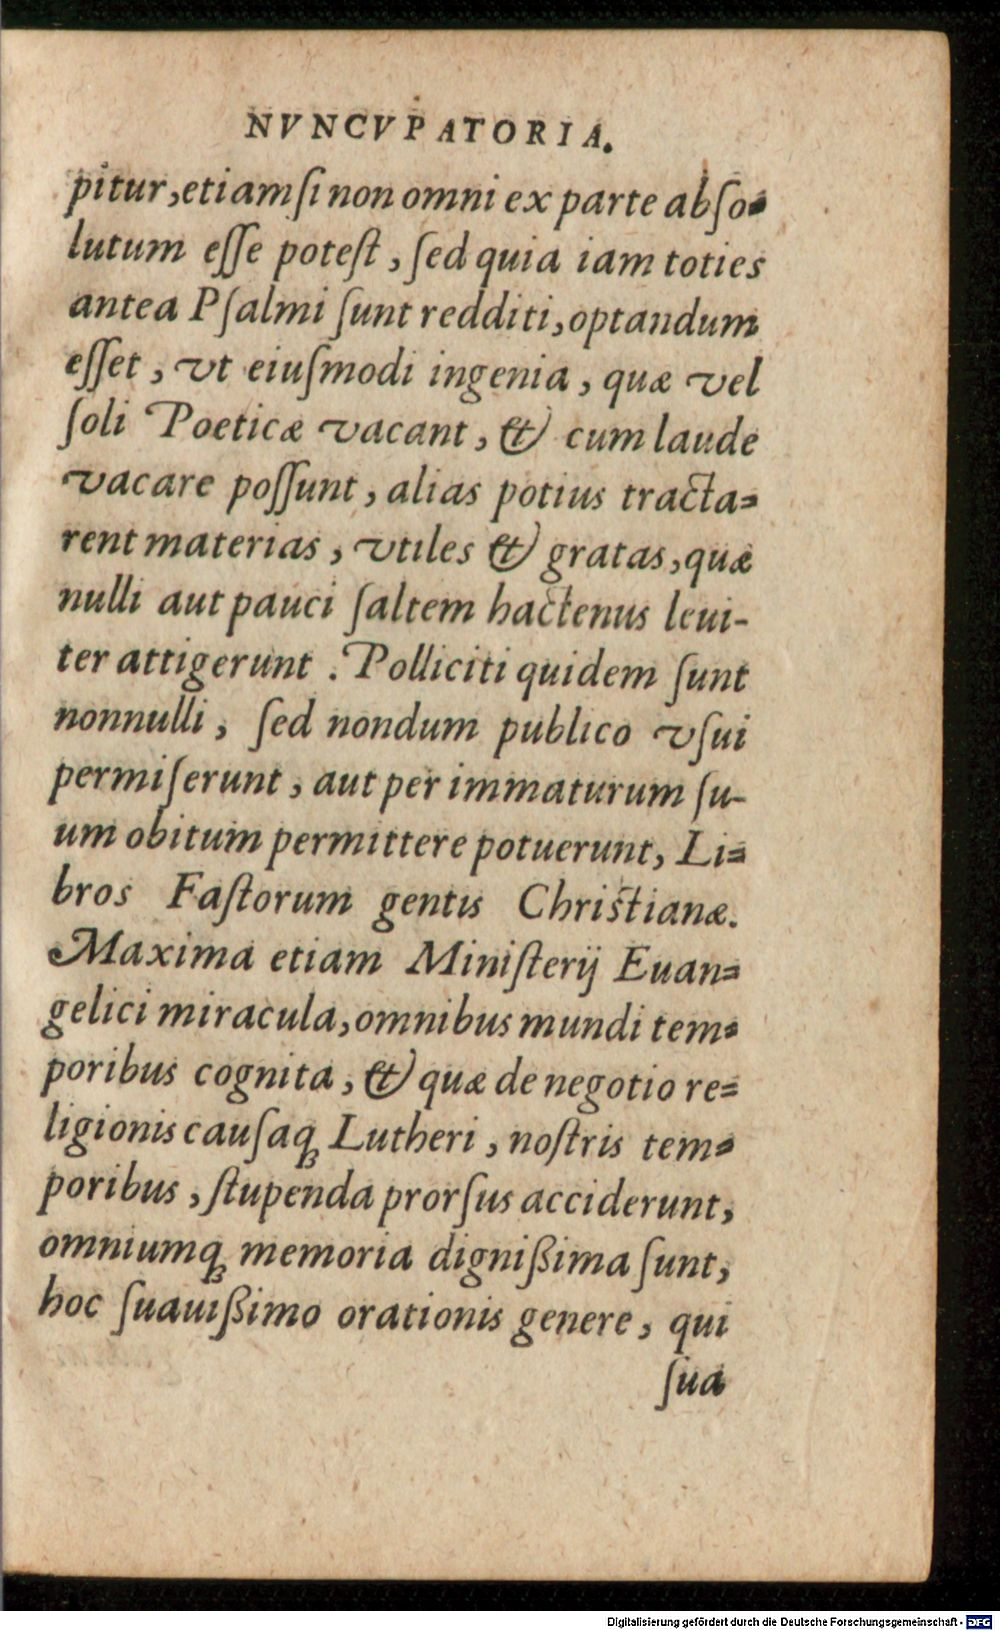 NVNCVPATORIA.
pitur, etiamſi non omni ex parte abſo-
lutum eſſe poteſt, ſed quia iam toties
antea Pſalmi ſunt redditi, optandum
eſſet, vt eiuſmodi ingenia, quæ vel
ſoli Poeticæ vacant, & cum laude
vacare poſſunt, alias potius tracta-
rent materias, vtiles & gratas, quæ
nulli aut pauci ſaltem hactenus leui-
ter attigerunt. Polliciti quidem ſunt
nonnulli, ſed nondum publico vſui
permiſerunt, aut per immaturum ſu-
um obitum permittere potuerunt, Li-
bros Faſtorum gentis Chriſtianæ.
Maxima etiam Miniſterij Euan-
gelici miracula, omnibus mundi tem-
poribus cognita, & quæ de negotio re-
ligionis cauſaꝗ Lutheri, noſtris tem-
poribus, ſtupenda prorſus acciderunt,
omniumꝗ memoria dignißima ſunt,
hoc ſuauißimo orationis genere, qui
ſua
Digitalisierung gefördert durch die Deutsche Forschungsgemeinschaft - DFG